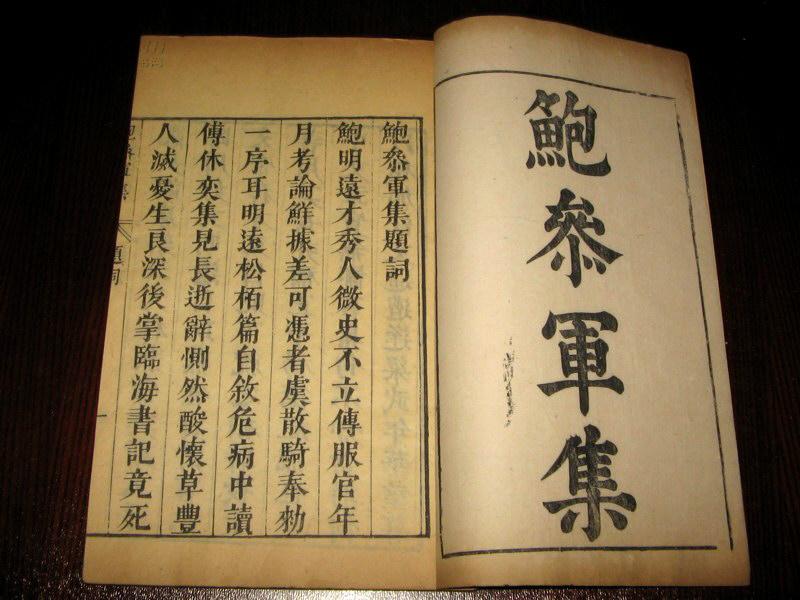 鮑叅軍集
鮑叅軍集題詞
鮑明遠才秀人微史不立傳服官年
月考論鮮據差可憑者虞散騎奉勑
一序耳明遠松栢篇自敘危病中讀
傅休奕集見長逝辭惻然酸懷草豐
人滅憂生良深後掌臨海書記竟死
題詞